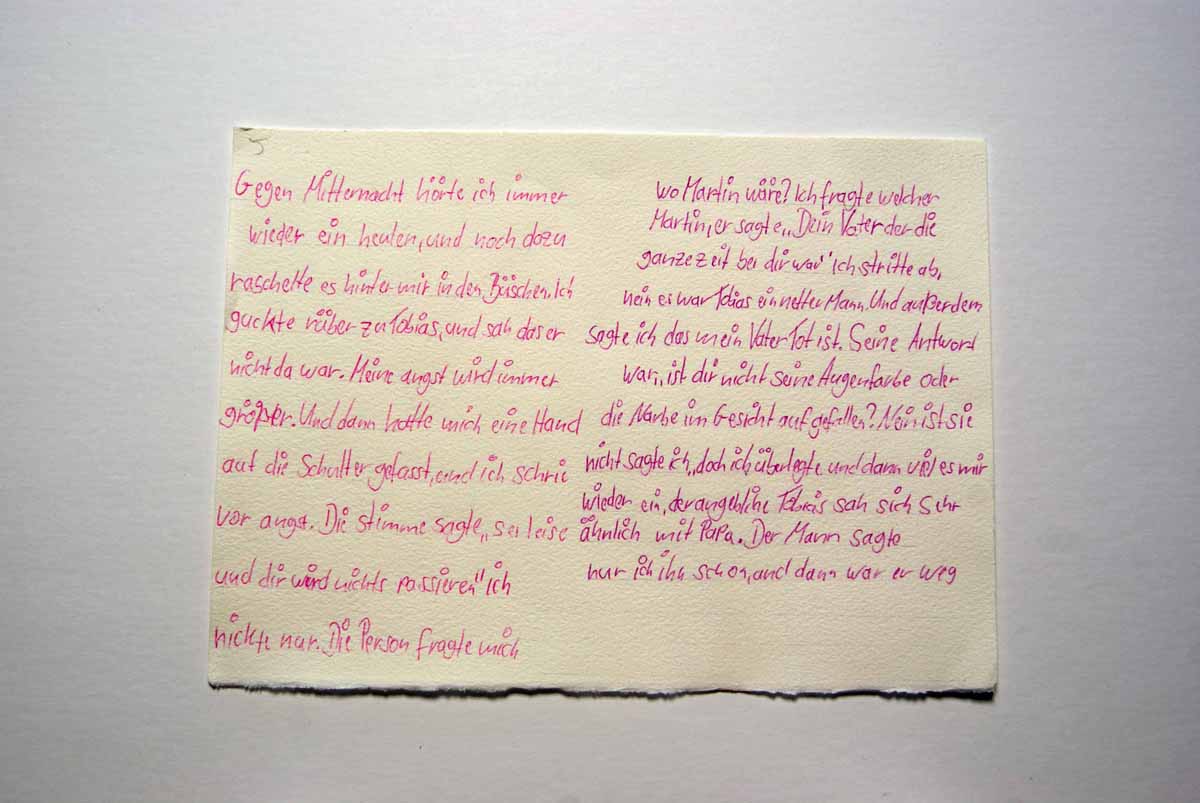 5
Gegen Mitternacht hörte ich immer
wieder ein heulen, und noch dazu
raschelte es hinter mir in den Büschen. Ich
guckte rüber zu Tobias, und sah das er
nicht da war. Meine angst wird immer
größer. Und dann hatte mich eine Hand
auf die Schulter gefasst, und ich schrie
vor angst. Die stimme sagte „sei leise
und dir wird nichts passieren" ich
nickte nur. Die Person fragte mich
wo Martin wäre? Ich fragte welcher
Martin, er sagte „Dein Vater der die
ganze zeit bei dir war" ich stritte ab,
nein es war Tobias ein netter Mann. Und außerdem
sagte ich das mein Vater Tot ist. Seine Antwort
war, ist dir nicht seine Augenfarbe oder
die Narbe im Gesicht auf gefallen? Nein ist sie
nicht sagte ich, doch ich überlegte und dann viel es mir
wieder ein, der angebliche Tobias sah sich sehr
ähnlich mit Papa. Der Mann sagte
nur ich ihn schon, und dann war er weg